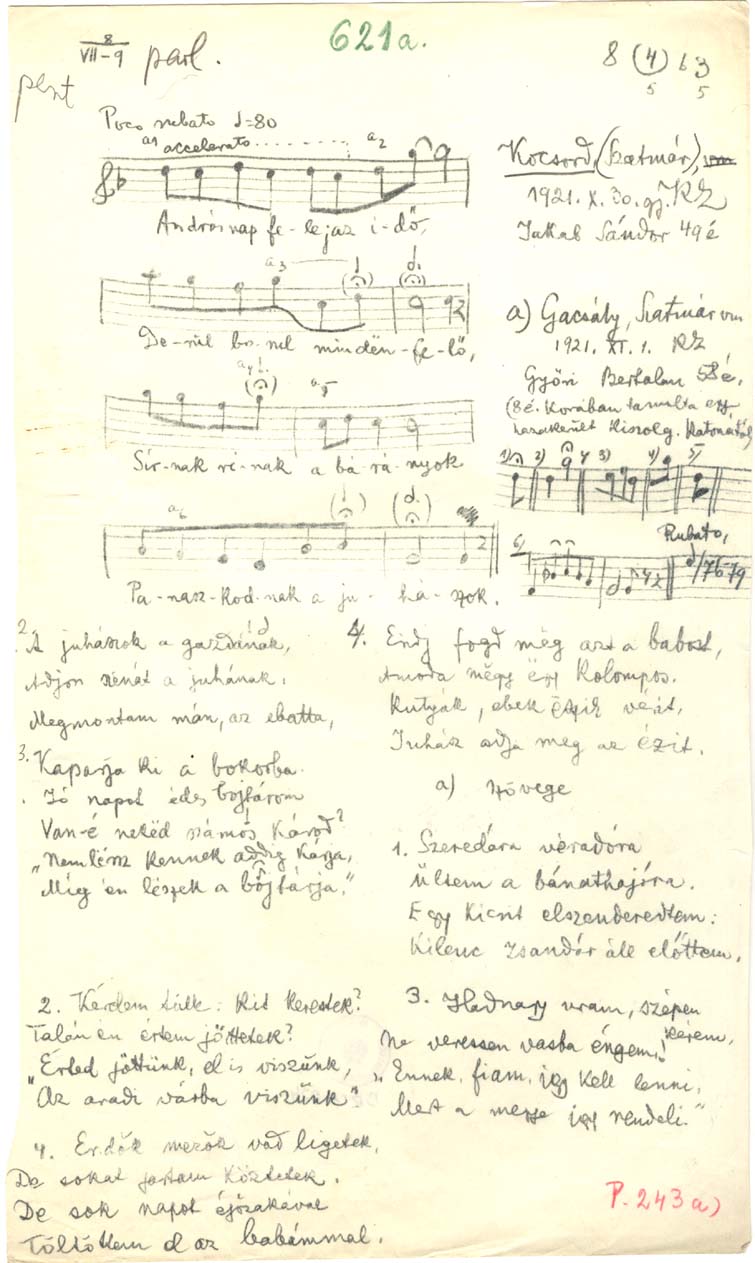 8
VII-9 parl.
621a.
8 (4) b3
5 5
Poco rubato ♩=80
a1 accelerato a2
András nap fe-le jaz i-dő,
a3
De-rül bo-rul mindën-fe-lő,
a4 a5
Sír-nak rí-nak a bá-rá-nyok
a6
Pa-nasz-kod-nak a ju-há-szok.
Kocsord (Szatmár),
1921. X. 30. gy. KZ
Jakab Sándor 49 é
a) Gacsály, Szatmár vm
1921. XI. 1. KZ
Győri Bertalan 58 é.
(8 é. korában tanulta egy
hazakerült kiszolg. katonától)
1) 2) 3) 4) 5)
Rubato,
6)
♩/76-79
2. A juhászok a gazdának,
Adjon szénát a juhának.
Megmontam mán, az ebatta,
Kaparja ki a bokorba.
3. Jó napot édes bojtárom
Van-é nekëd számos károd?
„Nem lërsz kennek addig kárja,
Míg én lészek a bojtárja."
4. Eridj fogd még azt a babost,
Amoda mëgy ëgy kolompos.
Kutyák, ebek ëszik vérit,
Juhász adja meg az ézit.
a) szövege
1. Szeredára véradóra
Ültem a bánathajóra.
Egy kicsit elszenderedtem:
Kilenc zsandár áll előttem.
2. Kérdem tűlle: kit kerestek?
Talán én értem jöttetek?
„Érted jöttünk, el is viszünk,
Az aradi várba viszünk"
3. Hadnagy uram, szépen kérem,
Ne veressen vasba éngem!
„Ennek, fiam, így kell lenni,
Mert a megye így rendeli."
4. Erdők mezők vad ligetek,
De sokat jártam köztetek.
De sok napot éjszakával
Töltöttem el az babámmal.
P. 243 a)